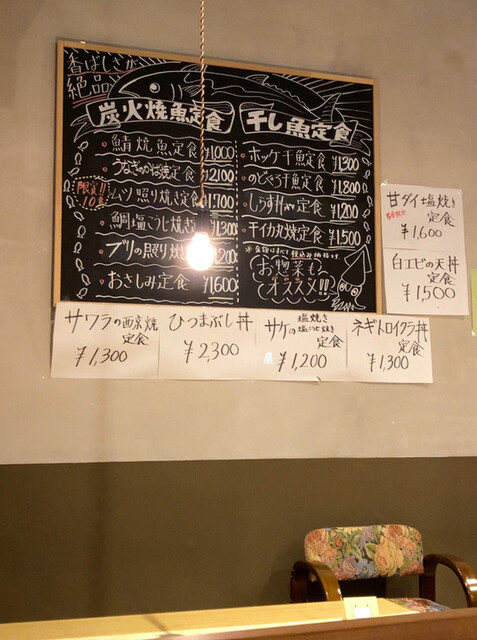 香ばしさが
絶品
炭火焼魚定食
・鯖焼魚定食 ¥1000
・うなぎのかば焼定食 ¥2100
限定!!
10名
ムツ照り焼き定食 ¥1,700
・鯛塩こうじ焼き 1,300
・ブリの照り焼 1,200
・おさしみ定食 ¥1,600
干し魚定食
・ホッケ干魚定食 ¥1,300
・のどぐろ干魚定食 ¥1,800
・しらす 定食 ¥1,200
・干イカ丸焼定食 ¥1,500
お惣菜も
オススメ!!
甘ダイ塩焼き
定食
¥1,600
白エビの天丼
定食
¥1,500
サワラの西京焼
定食
¥1,300
ひつまぶし丼
¥2,300
サケの塩焼き
塩こうじ焼き
定食
¥1,200
ネギトロイクラ丼
定食
¥1,300